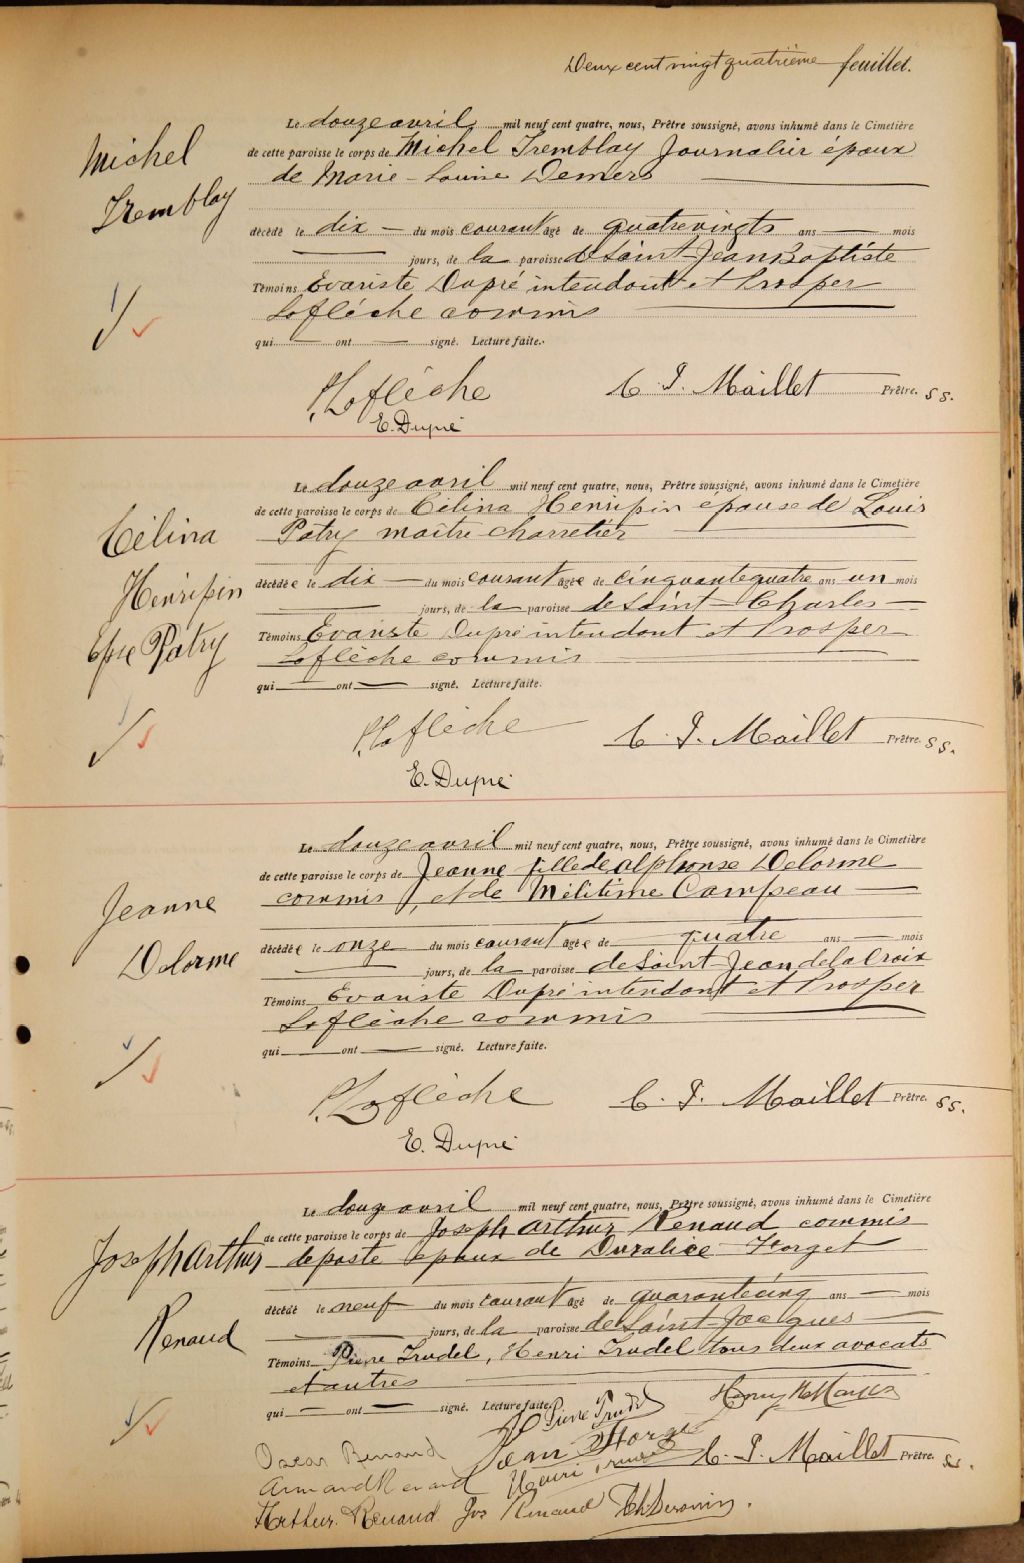 Deux cent vingt quatrième feuillet.
Michel
Tremblay
Le douze avril mil neuf cent quatre, nous, Prêtre soussigné, avons inhumé dans le Cimetière
de cette paroisse le corps de Michel Tremblay Journalier époux
de Marie-Louise Demers
décédé le dix du mois courant âgé de quatrevingts ans mois
jours, de la paroisse de Saint Jean Baptiste
Témoins Evariste Dupré intendant et Prosper
Laflèche commis
qui ont signé. Lecture faite.
P. Laflèche C. P. Maillet Prêtre. S S.
E. Dupré
Célina
Henripin
Epse Patry
Le douze avril mil neuf cent quatre, nous, Prêtre soussigné, avons inhumé dans le Cimetière
de cette paroisse le corps de Célina Henripin épouse de Louis
Patry maître charretier
décédée le dix du mois courant âgée de cinquante quatre ans un mois
jours, de la paroisse de Saint-Charles
Témoins Evariste Dupré intendant et Prosper
Laflèche commis
qui ont signé. Lecture faite.
P. Laflèche C. P. Maillet Prêtre. S S.
E. Dupré
Jeanne
Delorme
Le douze avril mil neuf cent quatre, nous, Prêtre soussigné, avons inhumé dans le Cimetière
de cette paroisse le corps de Jeanne fille de Alphonse Delorme
commis, et de Mélitime Campeau
décédée le onze du mois courant âgée de quatre ans mois
jours, de la paroisse de Saint Jean de la Croix
Témoins Evariste Dupré intendant et Prosper
Laflèche commis
qui ont signé. Lecture faite.
P. Laflèche C. P. Maillet Prêtre. S S.
E. Dupré
Joseph Arthur
Renaud
Le douze avril mil neuf cent quatre, nous, Prêtre soussigné, avons inhumé dans le Cimetière
de cette paroisse le corps de Joseph Arthur Renaud commis
de poste époux de Duralice Forget
décédé le neuf du mois courant âgé de quarante cinq ans mois
jours, de la paroisse de Saint-Jacques
Témoins Pierre Trudel, Henri Trudel tous deux avocats
et autres
qui ont signé. Lecture faite.
Pierre Trudel Henry
Oscar Renaud Jean Forget C. P. Maillet Prêtre. S S.
Armand Renaud Henri Trudel
Arthur Renaud Jos Renaud